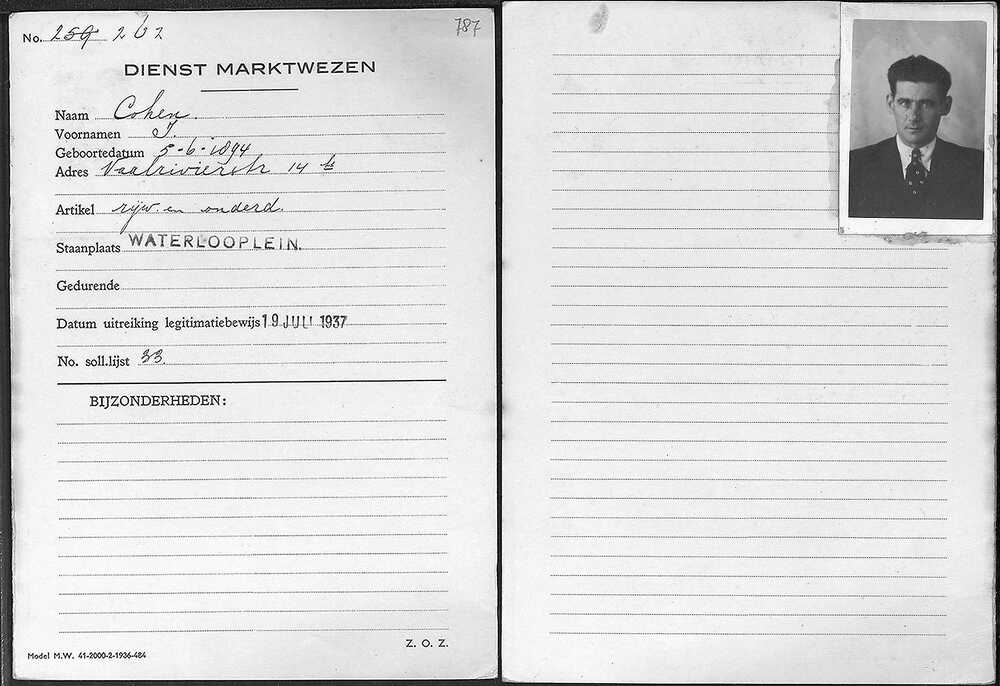 No. 259 262
787
DIENST MARKTWEZEN
Naam Cohen.
Voornamen I.
Geboortedatum 5-6-1894
Adres Vaalrivierstr 14 hs
Artikel rijw. en onderd.
Staanplaats WATERLOOPLEIN.
Gedurende
Datum uitreiking legitimatiebewijs 19 JULI 1937
No. soll.lijst 33.
BIJZONDERHEDEN:
Z. O. Z.
Model M.W. 41-2000-2-1936-484